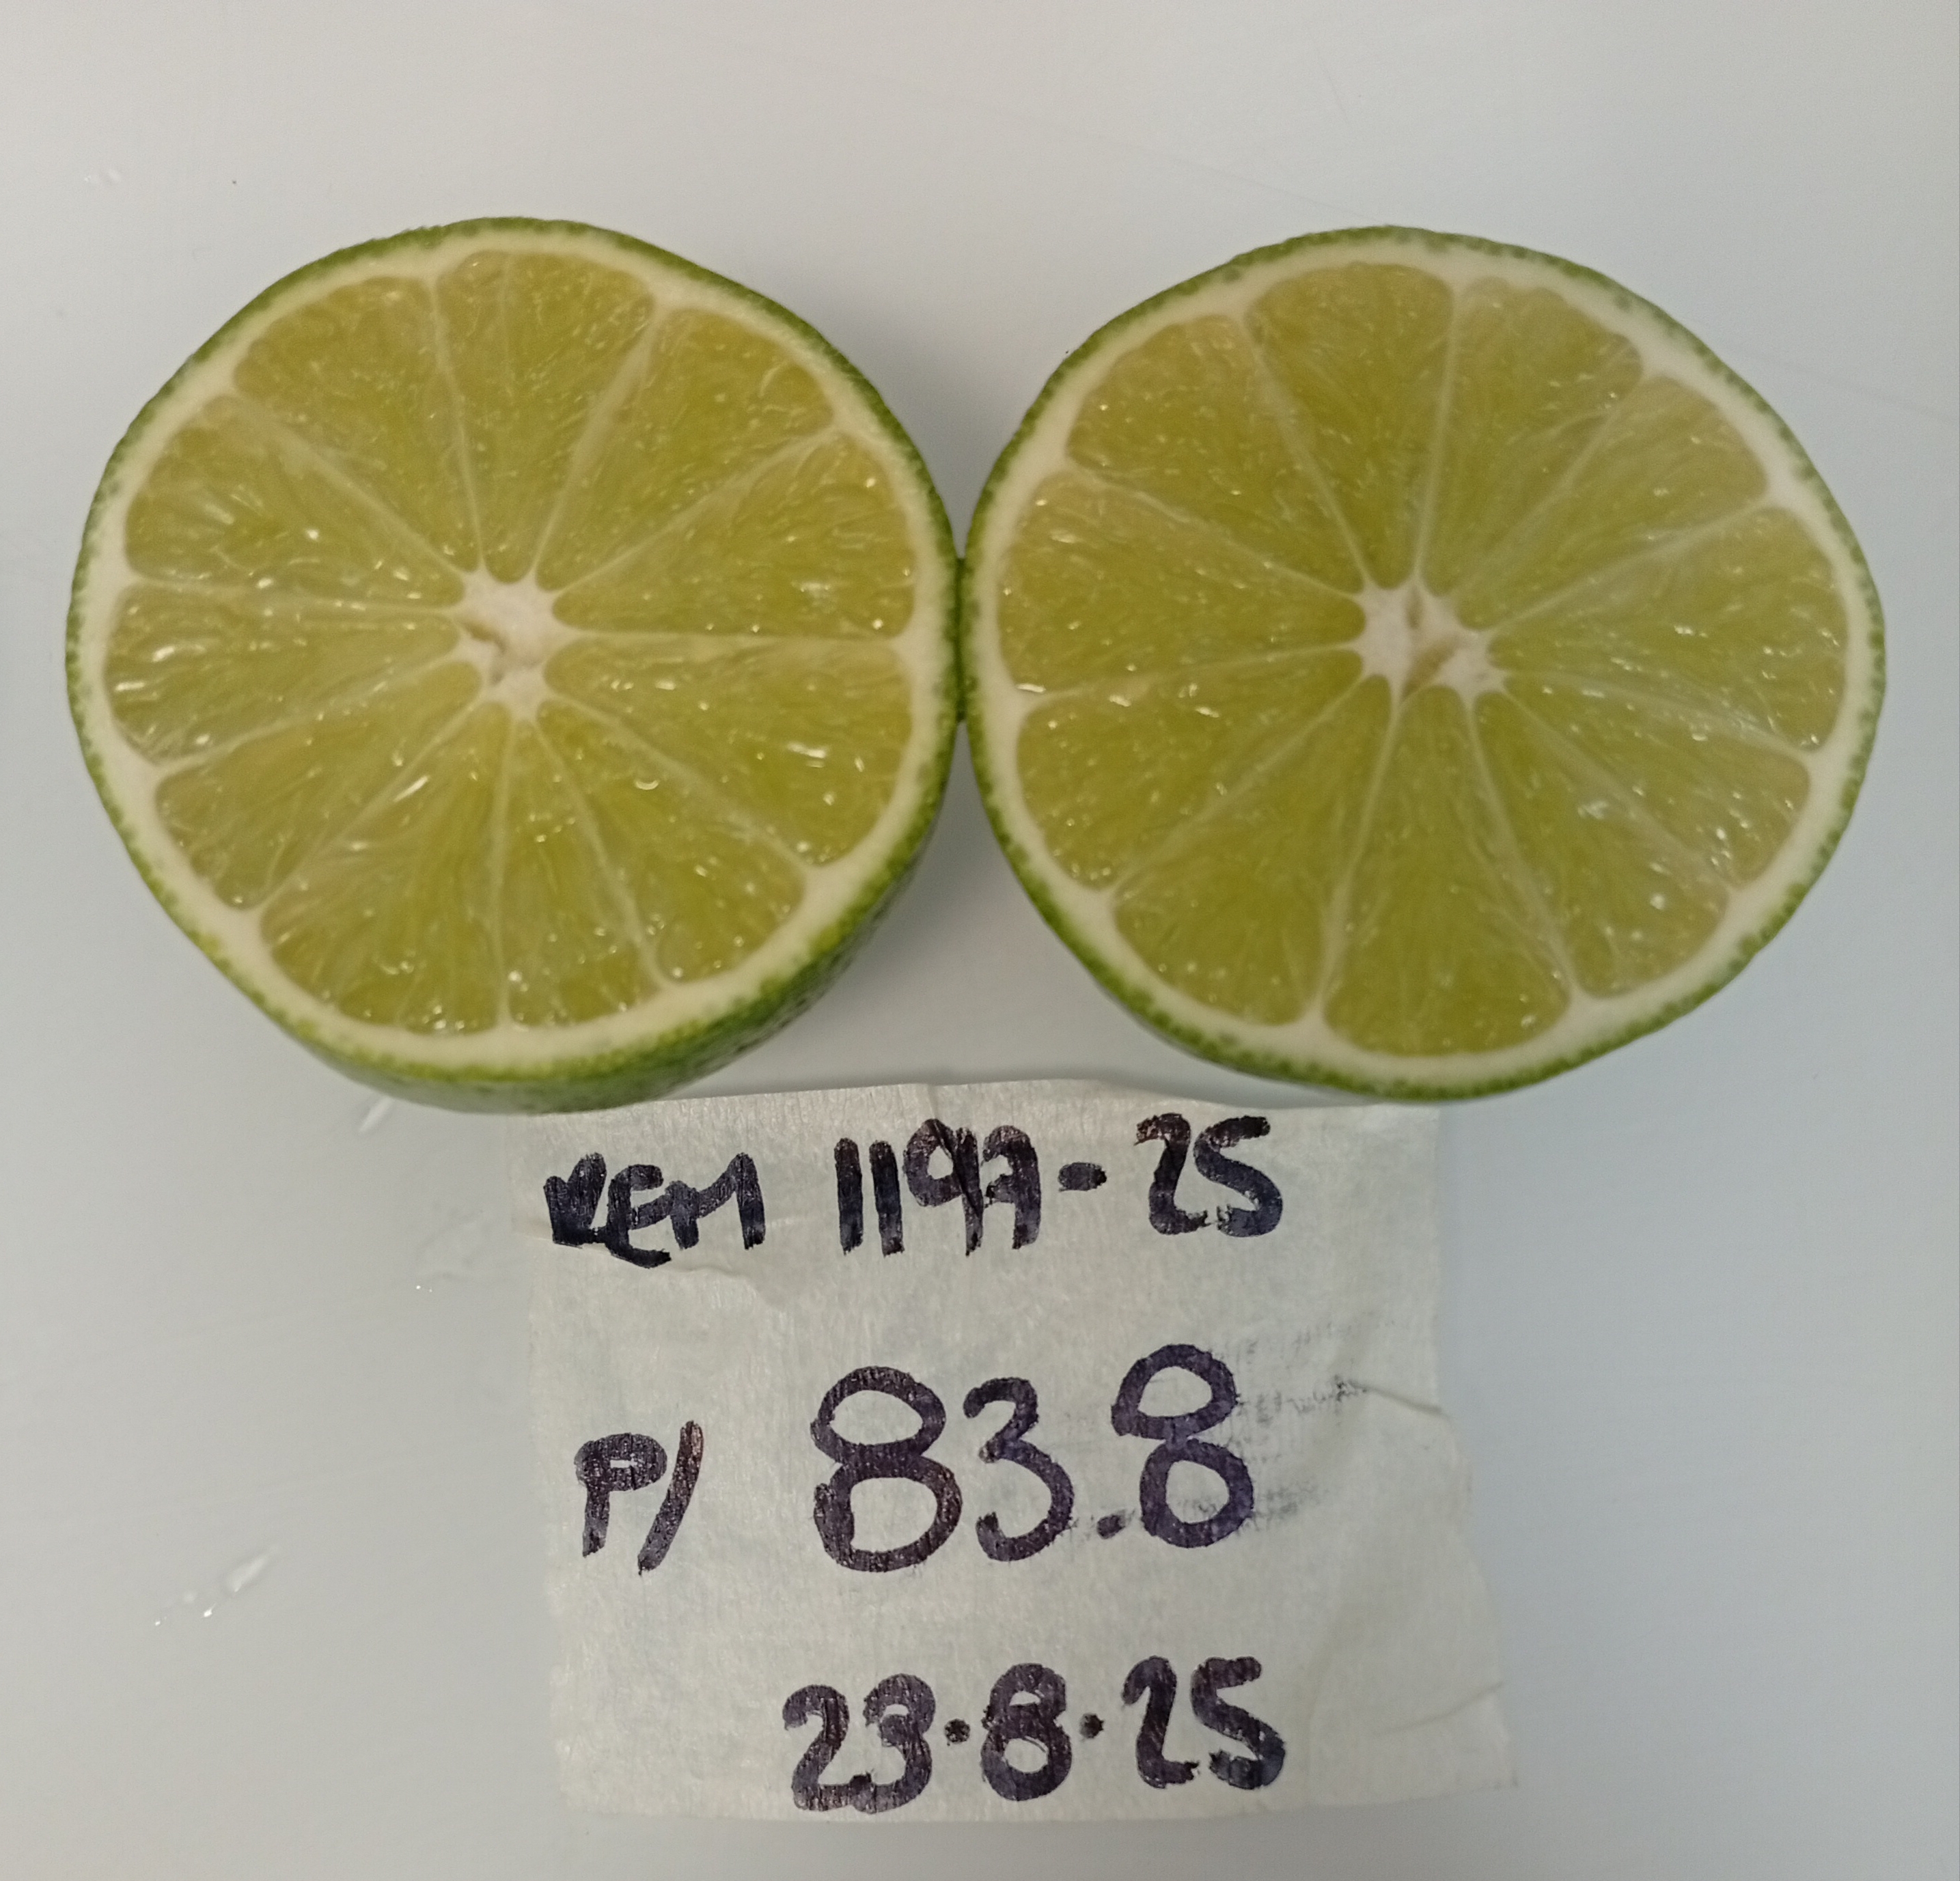 REM 1197-25
P/ 83.8
23.8.25